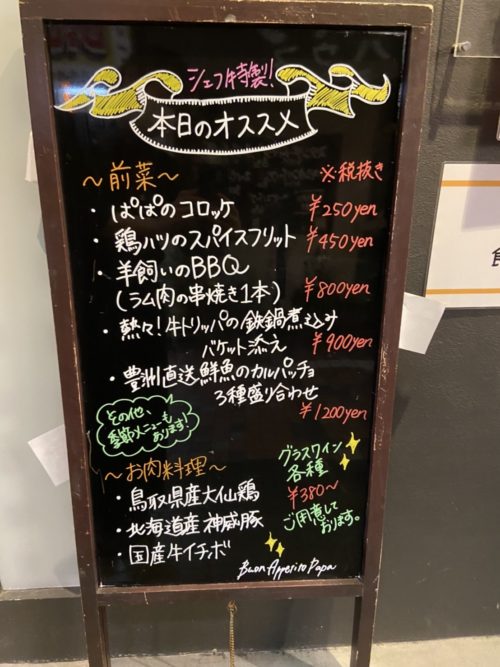 シェフ特製!
本日のオススメ
〜前菜〜 ※税抜き
・ぱぱのコロッケ ¥250yen
・鶏ハツのスパイスフリット ¥450yen
・羊飼いのBBQ
(ラム肉の串焼き1本) ¥800yen
・熱々!牛トリッパの鉄鍋煮込み
バケット添え ¥900yen
・豊洲直送鮮魚のカルパッチョ
3種盛り合わせ
¥1200yen
その他、
季節メニューも
おります!
〜お肉料理〜
・鳥取県産大仙鶏
・北海道産神威豚
・国産牛イチボ
グラスワイン
各種
¥380〜
ご用意して
おります。
Buon Appetito Papa